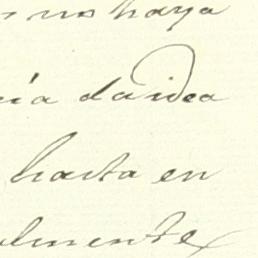 no haya
ía da idea
hasta en
almente